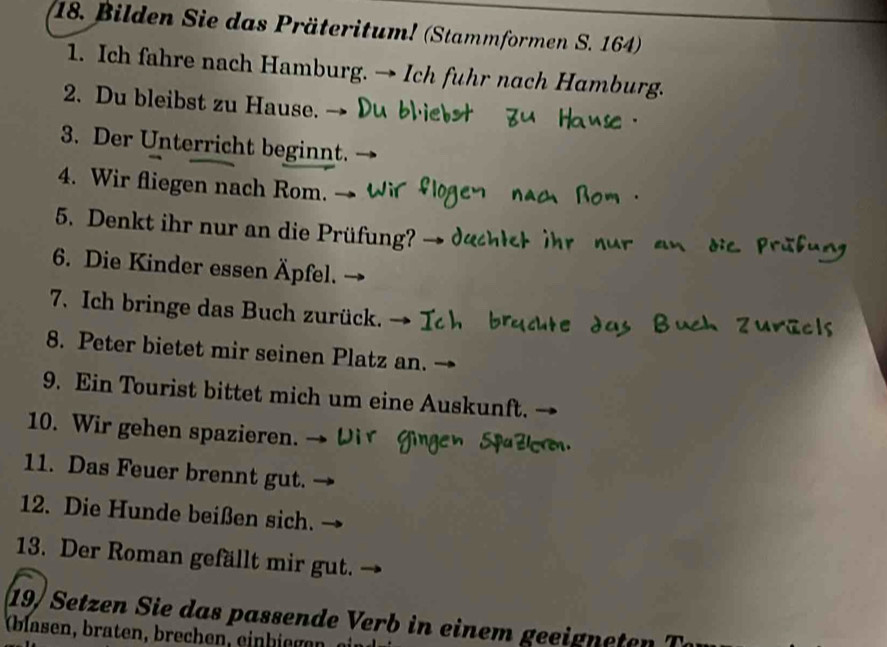 18. Bilden Sie das Präteritum! (Stammformen S. 164)
1. Ich fahre nach Hamburg. → Ich fuhr nach Hamburg.
2. Du bleibst zu Hause. → Du bliebst zu Hause.
3. Der Unterricht beginnt. →
4. Wir fliegen nach Rom. → Wir flogen nach Rom.
5. Denkt ihr nur an die Prüfung? → dachtet ihr nur an die Prüfung
6. Die Kinder essen Äpfel. →
7. Ich bringe das Buch zurück. → Ich brachte das Buch zurück
8. Peter bietet mir seinen Platz an. →
9. Ein Tourist bittet mich um eine Auskunft. →
10. Wir gehen spazieren. → Wir gingen spazieren.
11. Das Feuer brennt gut. →
12. Die Hunde beißen sich. →
13. Der Roman gefällt mir gut. →
19. Setzen Sie das passende Verb in einem geeigneten
(blasen, braten, brechen, einbiegen